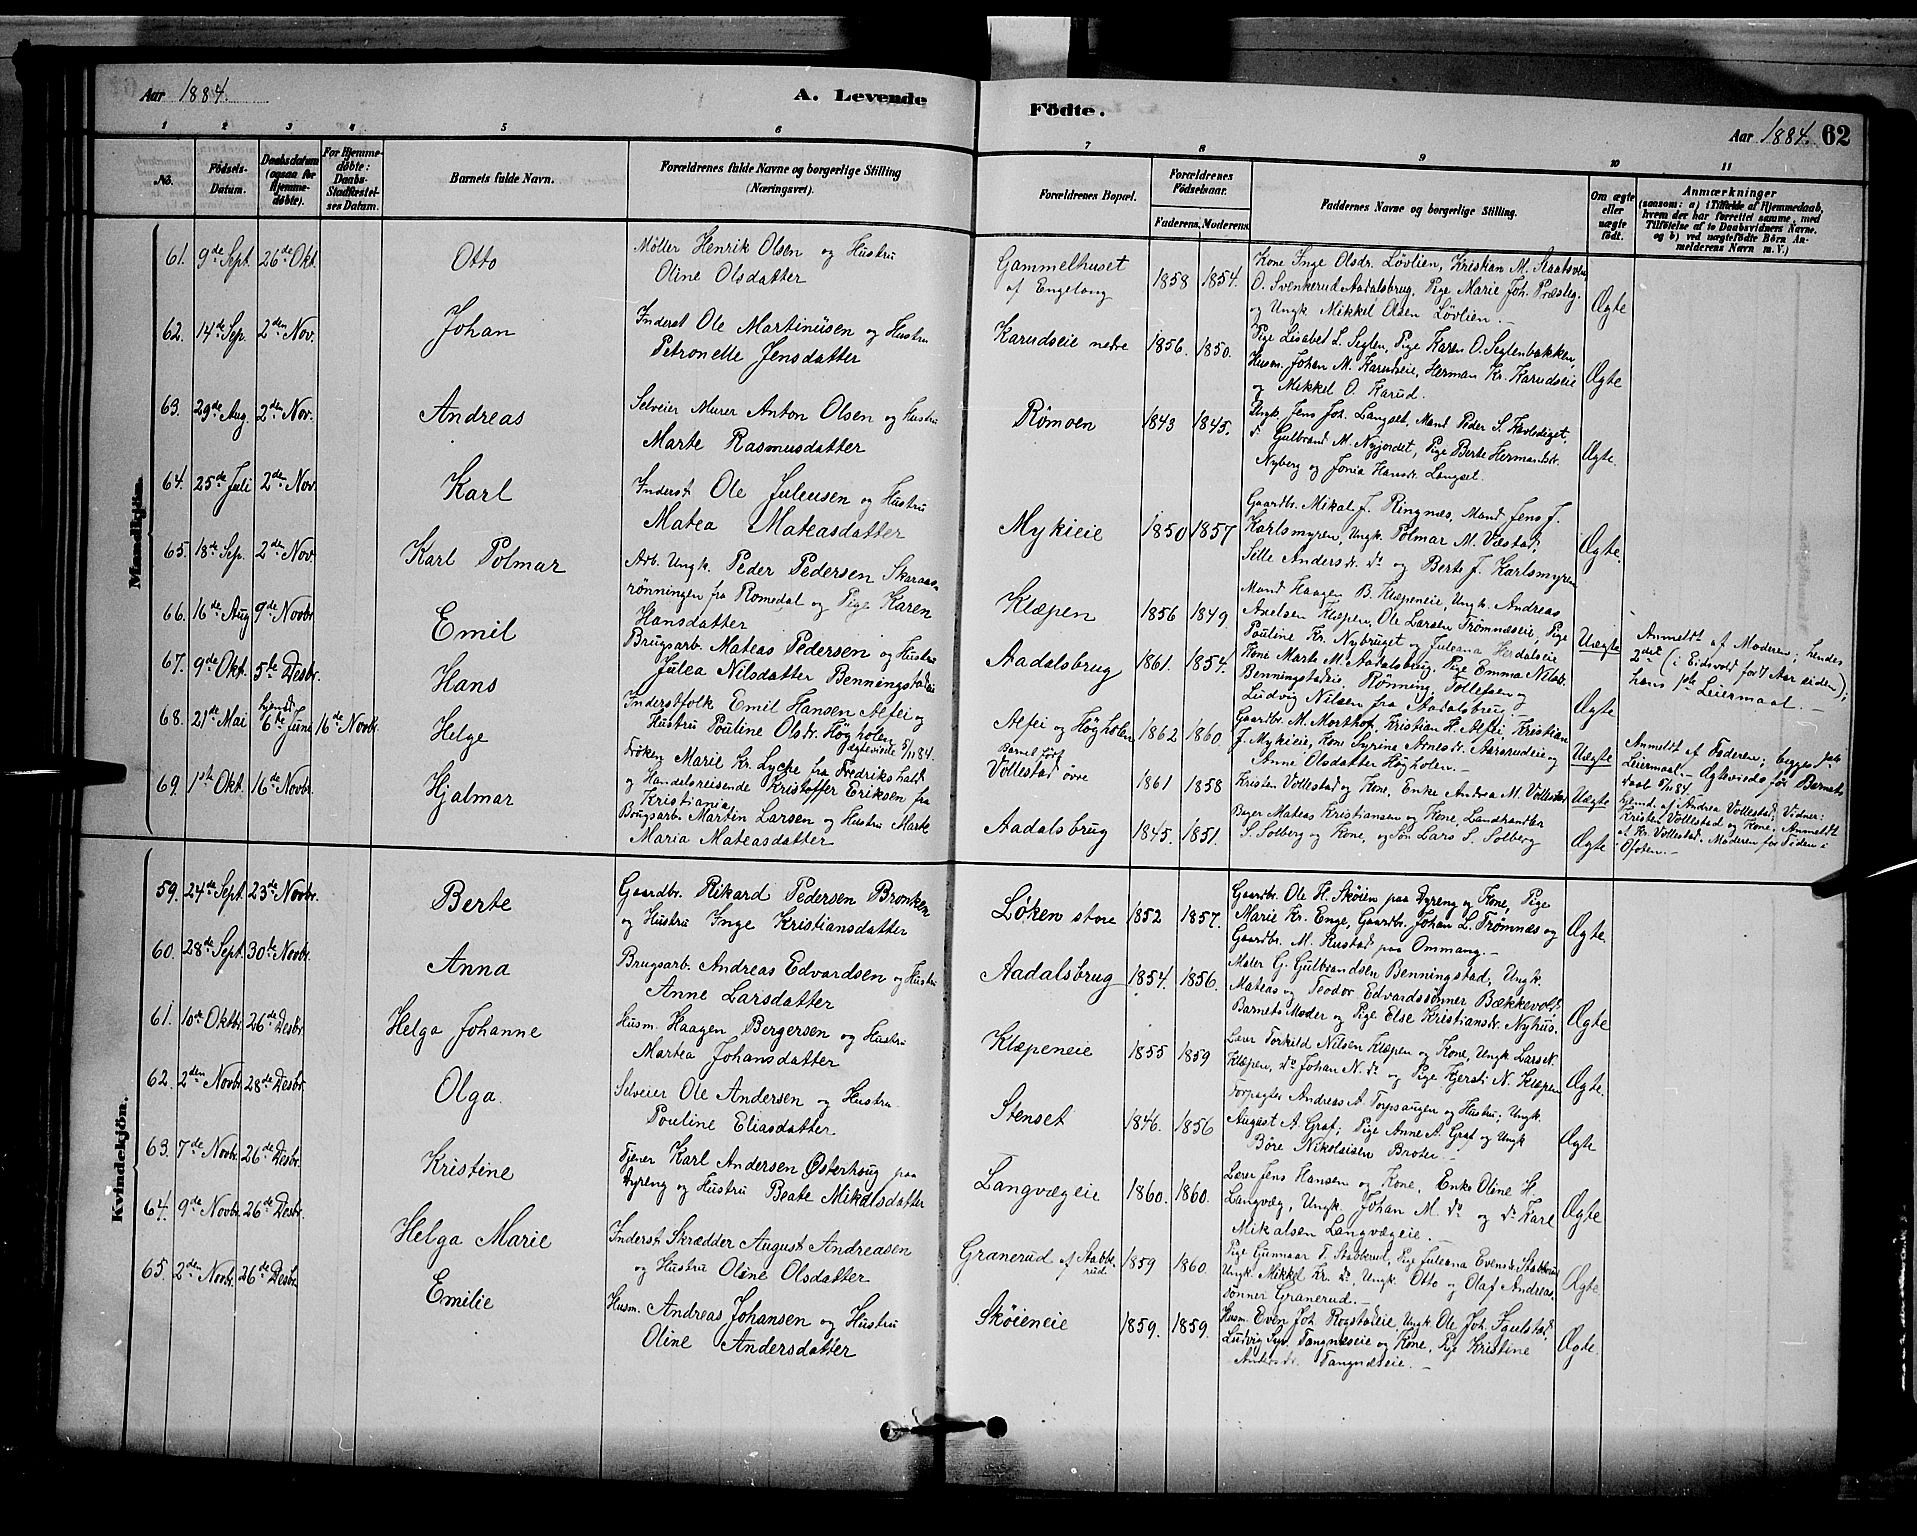 Aar 1884.
A. Levende
Födte.
Aar 1884.
62
1
2
3
4
5
6
7
8
9
10
11
No.
Födsels-
Datum.
Daabsdatum
(ogsaa for
Hjemme-
døbte).
For Hjemme-
døbte:
Daabs-
Stadfæstel-
ses Datum.
Barnets fulde Navn.
Forældrenes fulde Navne og borgerlige Stilling
(Næringsvei).
Forældrenes Bopæl.
Forældrenes
Födselsaar.
Faderens.
Moderens.
Faddernes Navne og borgerlige Stilling.
Om ægte
eller
uægte
født.
Anmærkninger
(saasom: a) i Tilfælde af Hjemmedaab,
hvem der har forrettet samme, med
Tilföielse af to Daabsvidners Navne.
og b) ved uægtefödte Börn An-
melderens Navn m. V.)
Mandkjön.
61. 9de Sept. 26de Okt. Otto
Møller Henrik Olsen og Hustru
Oline Olsdatter
Gammelhuset
af Engelaug
1858 1854.
Kone Inge Olsdr. Løvlien, Kristian M. Staatsven
O. Svenkerud Aadalsbrug, Pige Marie Joh. Præsteg.
og Ungk. Mikkel Olsen Løvlien.
Ægte
62. 14de Sep. 2den Nov. Johan
Inderst Ole Martinüsen og Hustru
Petronelle Jensdatter
Karudseie nedre 1856. 1850.
Pige Lisabet L. Seglen, Pige Karen O. Seglenbakken,
Husm. Johan M. Karudseie, Herman Kr. Karudseie
og Mikkel O. Karud.
Ægte
63. 29de Aug. 2den Nov. Andreas
Selveier Murer Anton Olsen og Hustru
Marte Rasmusdatter
Rømoen 1843 1845.
Ungk. Jens Joh. Langset, Mand Peder S.
Gulbrand M. Nyjordet, Pige Berte Hermandsdr.
Nyberg og Jonia Hansdr. Langset.
Ægte.
64. 25de Juli 2den Nov. Karl
Inderst Ole Juleusen og Hustru
Matea Mateasdatter
Mykieie 1850 1857
Gaardbr. Mikal J. Ringnæs, Mand Jens J.
Karlsmyren, Ungk. Polmar M. Væstad,
Sille Andersdr. do og Berte J. Karlsmyren
Ægte.
65. 18de Sep. 2den Nov. Karl Polmar
Arb. Ungk. Peder Pedersen Skaraas-
rönningen fra Romedal og Pige Karen
Hansdatter
Klæpen 1856 1849.
Mand Haagen B. Klæpeneie, Ungk. Andreas
Axelsen Klæpen, Ole Larsen Trömnæseie, Pige
Pauline Kr. Nybruget og Juleana Herdalseie
Uægte
Anmeldt af Moderen; hendes
2det (i Eidsvold for 7 Aar siden);
hans 1ste Leiermaal.
66. 16de Aug 9de Novbr. Emil
Brugsarb. Mateas Pedersen og Hustru
Julea Nilsdatter Benningstadeie
Aadalsbrug 1861. 1854.
Kone Marte M. Aadalsbrug, Pige Emma Nilsd.
Benningstadeie, Rönning, Tollefsen og
Ludvig Nilsen fra Aadalsbrug.
Ægte
67. 9de Okt. 5te Desbr. Hans
Inderstfolk Emil Hansen Alfei og
Hustru Pouline Olsdr. Högholen
Ægteviede 5/11 84.
Alfei og Högholen 1862 1860
Gaardbr. M. Morthof, Kristian H. Alfei, Kristian
J. Mykieie, Kone Syrina Arnesdr. Aasrudeie og
Anne Olsdatter Högholen.
Uægte
Anmeldt af Faderen; begges 1ste
Leiermaal. Ægteviede før Barnets
Daab 5/11 84.
68. 21de Mai hjemd. 6te Juni 16de Novbr. Helge
Frøken Marie Kr. Lycke fra Fredrikshald
og Handelsreisende Kristoffer Eriksen fra
Kristiania.
Barnet født
Vollestad øvre 1861 1858
Kristen Vollestad og Kone, Enke Andrea M. Vollestad
Uægte
hjemd. af Andrea Vollestad; Vidner:
Kristen Vollestad og Kone, Anmeldt
af Kr. Vollestad. Moderen før Föden i
Ofoten.
69. 1ste Okt. 16de Novbr. Hjalmar
Brugsarb. Martin Larsen og Hustru Marte
Maria Mateasdatter
Aadalsbrug 1845. 1851.
Bager Mateas Kristiansen og Kone, Landhandler
S. Solberg og Kone, og Søn Lars S. Solberg
Ægte
Kvindekjön.
59. 24de Sept. 23de Novbr. Berte
Gaardbr. Rikard Pedersen Bronken
og Hustru Inge Kristiansdatter
Löken store 1852 1857.
Gaardbr. Ole H. Skøien paa Dyreng og Kone, Pige
Marie Kr. Enge, Gaardbr. Johan L. Trömnæs og
Gaardbr. M. Rustad paa Ommang.
Ægte.
60. 28de Sept. 30te Novbr. Anna
Brugsarb. Andreas Edvardsen og Hustru
Anne Larsdatter
Aadalsbrug 1854. 1856.
Maler G. Gulbrandsen Benningstad, Ungk.
Mateas og Teodor Edvardssönner Bækkevold,
Barnets Moder og Pige Else Kristiansdr. Nyhus.
Ægte
61. 10de Oktbr. 26de Desbr. Helga Johanne
Husm. Haagen Bergersen og Hustru
Martea Johansdatter
Klæpeneie 1855 1859
Lærer Torkild Nilsen Klæpen og Kone, Ungk. Lars N.
Klæpen, do Johan N. do og Pige Kjersti N. Klæpen
Ægte.
62. 2den Novbr. 28de Desbr. Olga.
Selveier Ole Andersen og Hustru
Pouline Eliasdatter
Stenset 1846. 1856
Forpagter Andreas A. Torpsaugen og Hustru, Ungk.
August A. Graf, Pige Anne A. Graf og Ungk
Böre Nikolaisen Broter.
Ægte
63. 7de Novbr. 26de Desbr. Kristine
Tjener Karl Andersen Østerhaug paa
Dyreng og Hustru Beate Mikalsdatter
Langvægeie 1860. 1860.
Lærer Jens Hansen og Kone, Enke Oline H.
Langvæg, Ungk. Johan M. do og do Karl
Mikalsen Langvægeie.
Ægte
64. 9de Novbr. 26de Desbr. Helga Marie
Inderst Skrædder August Andreasen
og Hustru Oline Olsdatter
Granerud af Stabbe-
rud 1859 1860.
Pige Gunnaar T. Stabberud, Pige Juleana Evensdr. Stabberud
Ungk. Mikkel Kr. do, Ungk. Otto og Olaf Andreas-
sönner Granerud.
Ægte.
65. 2den Novbr. 26de Desbr. Emilie
Husm. Andreas Johansen og Hustru
Oline Andersdatter
Skøieneie 1859. 1859.
Husm. Even Joh. Rogstadeie, Ungk. Ole Joh. Faulstad,
Ludvig Syv. Tangnæseie og Kone, Pige Kristine
Andersdr. Tangnæseie.
Ægte.